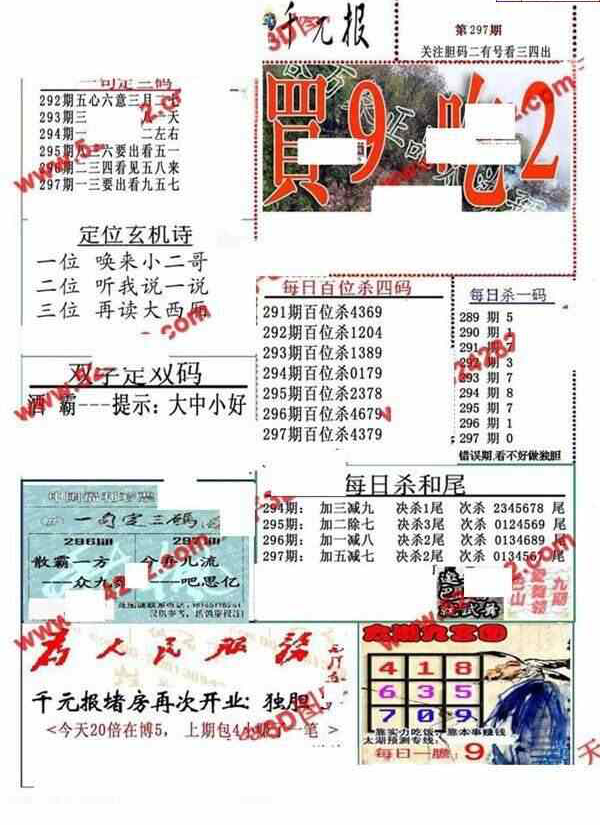 千元报
第297期
关注胆码二有号看三四出
買9 吃2
一句定三码
292期五心六意三月二七
293期三 九一天
294期一 二左右
295期九二六要出看五一
296期二三四看见五八来
297期一三要出看九五七
定位玄机诗
一位 唤来小二哥
二位 听我说一说
三位 再读大西厢
每日百位杀四码
291期百位杀4369
292期百位杀1204
293期百位杀1389
294期百位杀0179
295期百位杀2378
296期百位杀4679
297期百位杀4379
每日杀一码
289 期 5
290 期 1
291 期 7
292 期 3
293 期 7
294 期 8
295 期 7
296 期 1
297 期 0
错误期,看不好做独胆
双字定双码
酒 霸---提示: 大中小好
每日杀和尾
294期: 加三减九 决杀1尾 次杀 2345678 尾
295期: 加二除七 决杀3尾 次杀 0124569 尾
296期: 加一减八 决杀2尾 次杀 0134569 尾
297期: 加五减七 决杀2尾 次杀 0134567 尾
一句定三码
296期
297期
散霸一方
今五儿流
——众九
——吧思亿
为人民服务
千元报堵房再次开业: 独胆
<今天20倍在博5, 上期包4 一笔 >
太湖九宫图
4 1 8
6 3 5
7 0 9
靠实力吃饭,靠本事赚钱
太湖预测专线:
每日一胆 9